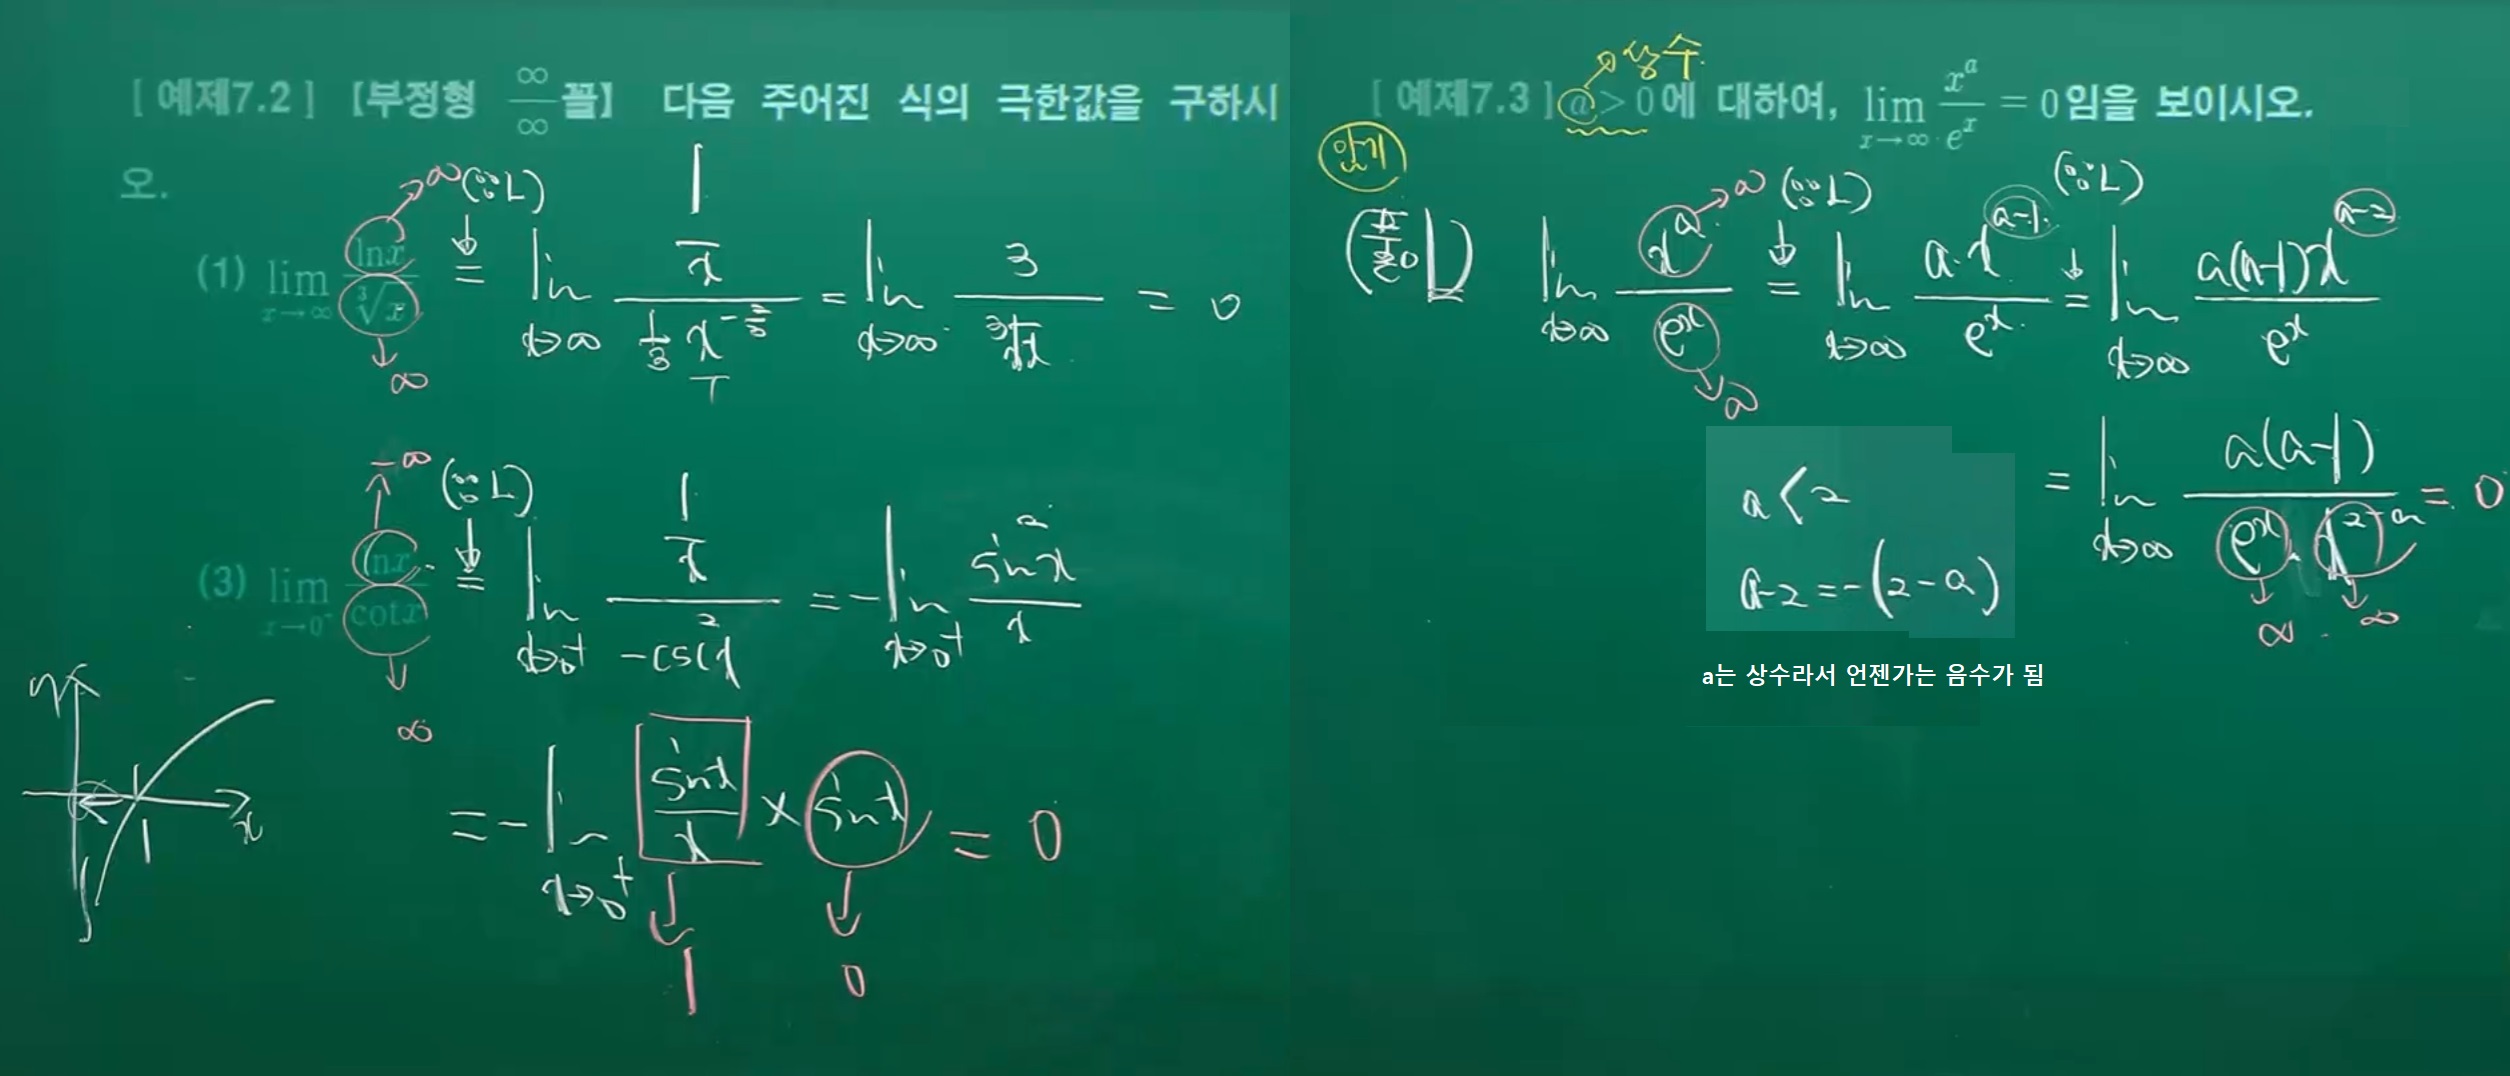 [ 예제7.2 ] [부정형 ∞/∞ 꼴] 다음 주어진 식의 극한값을 구하시
오.
(1) lim_{x→∞} lnx/∛x = (∵L) lim_{x→∞} (1/x)/((1/3)x^{-2/3}) = lim_{x→∞} 3/∛x = 0
∞
∞
(3) lim_{x→0⁻} lnx/cotx = (∵L) lim_{x→0⁺} (1/x)/(-csc²x) = -lim_{x→0⁺} sin²x/x
-∞
∞
= -lim_{x→0⁺} sinx/x × sinx = 0
1
0
y
x
1
[ 예제7.3 ] a > 0에 대하여, lim_{x→∞} x^a/e^x = 0임을 보이시오.
상수
암기
lim_{x→∞} x^a/e^x = (∵L) lim_{x→∞} a·x^{a-1}/e^x = (∵L) lim_{x→∞} a(a-1)x^{a-2}/e^x
∞
∞
= lim_{x→∞} a(a-1)/(e^x · x^{2-a}) = 0
∞ ∞
a < 2
a-2 = -(2-a)
a는 상수라서 언젠가는 음수가 됨